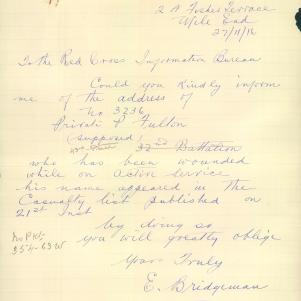 2 A Fosker Terrace
Mile End
27/11/16
To the Red Cross Information Bureau
Could you kindly inform
me of the address of
No 3236
Private P Fulton
(supposed)
32nd Battalion
who has been wounded
while on Active Service
his name appeared in the
Casualty list published on
21st Inst
by doing so
you will greatly oblige
Yours Truly
E. Bridgeman